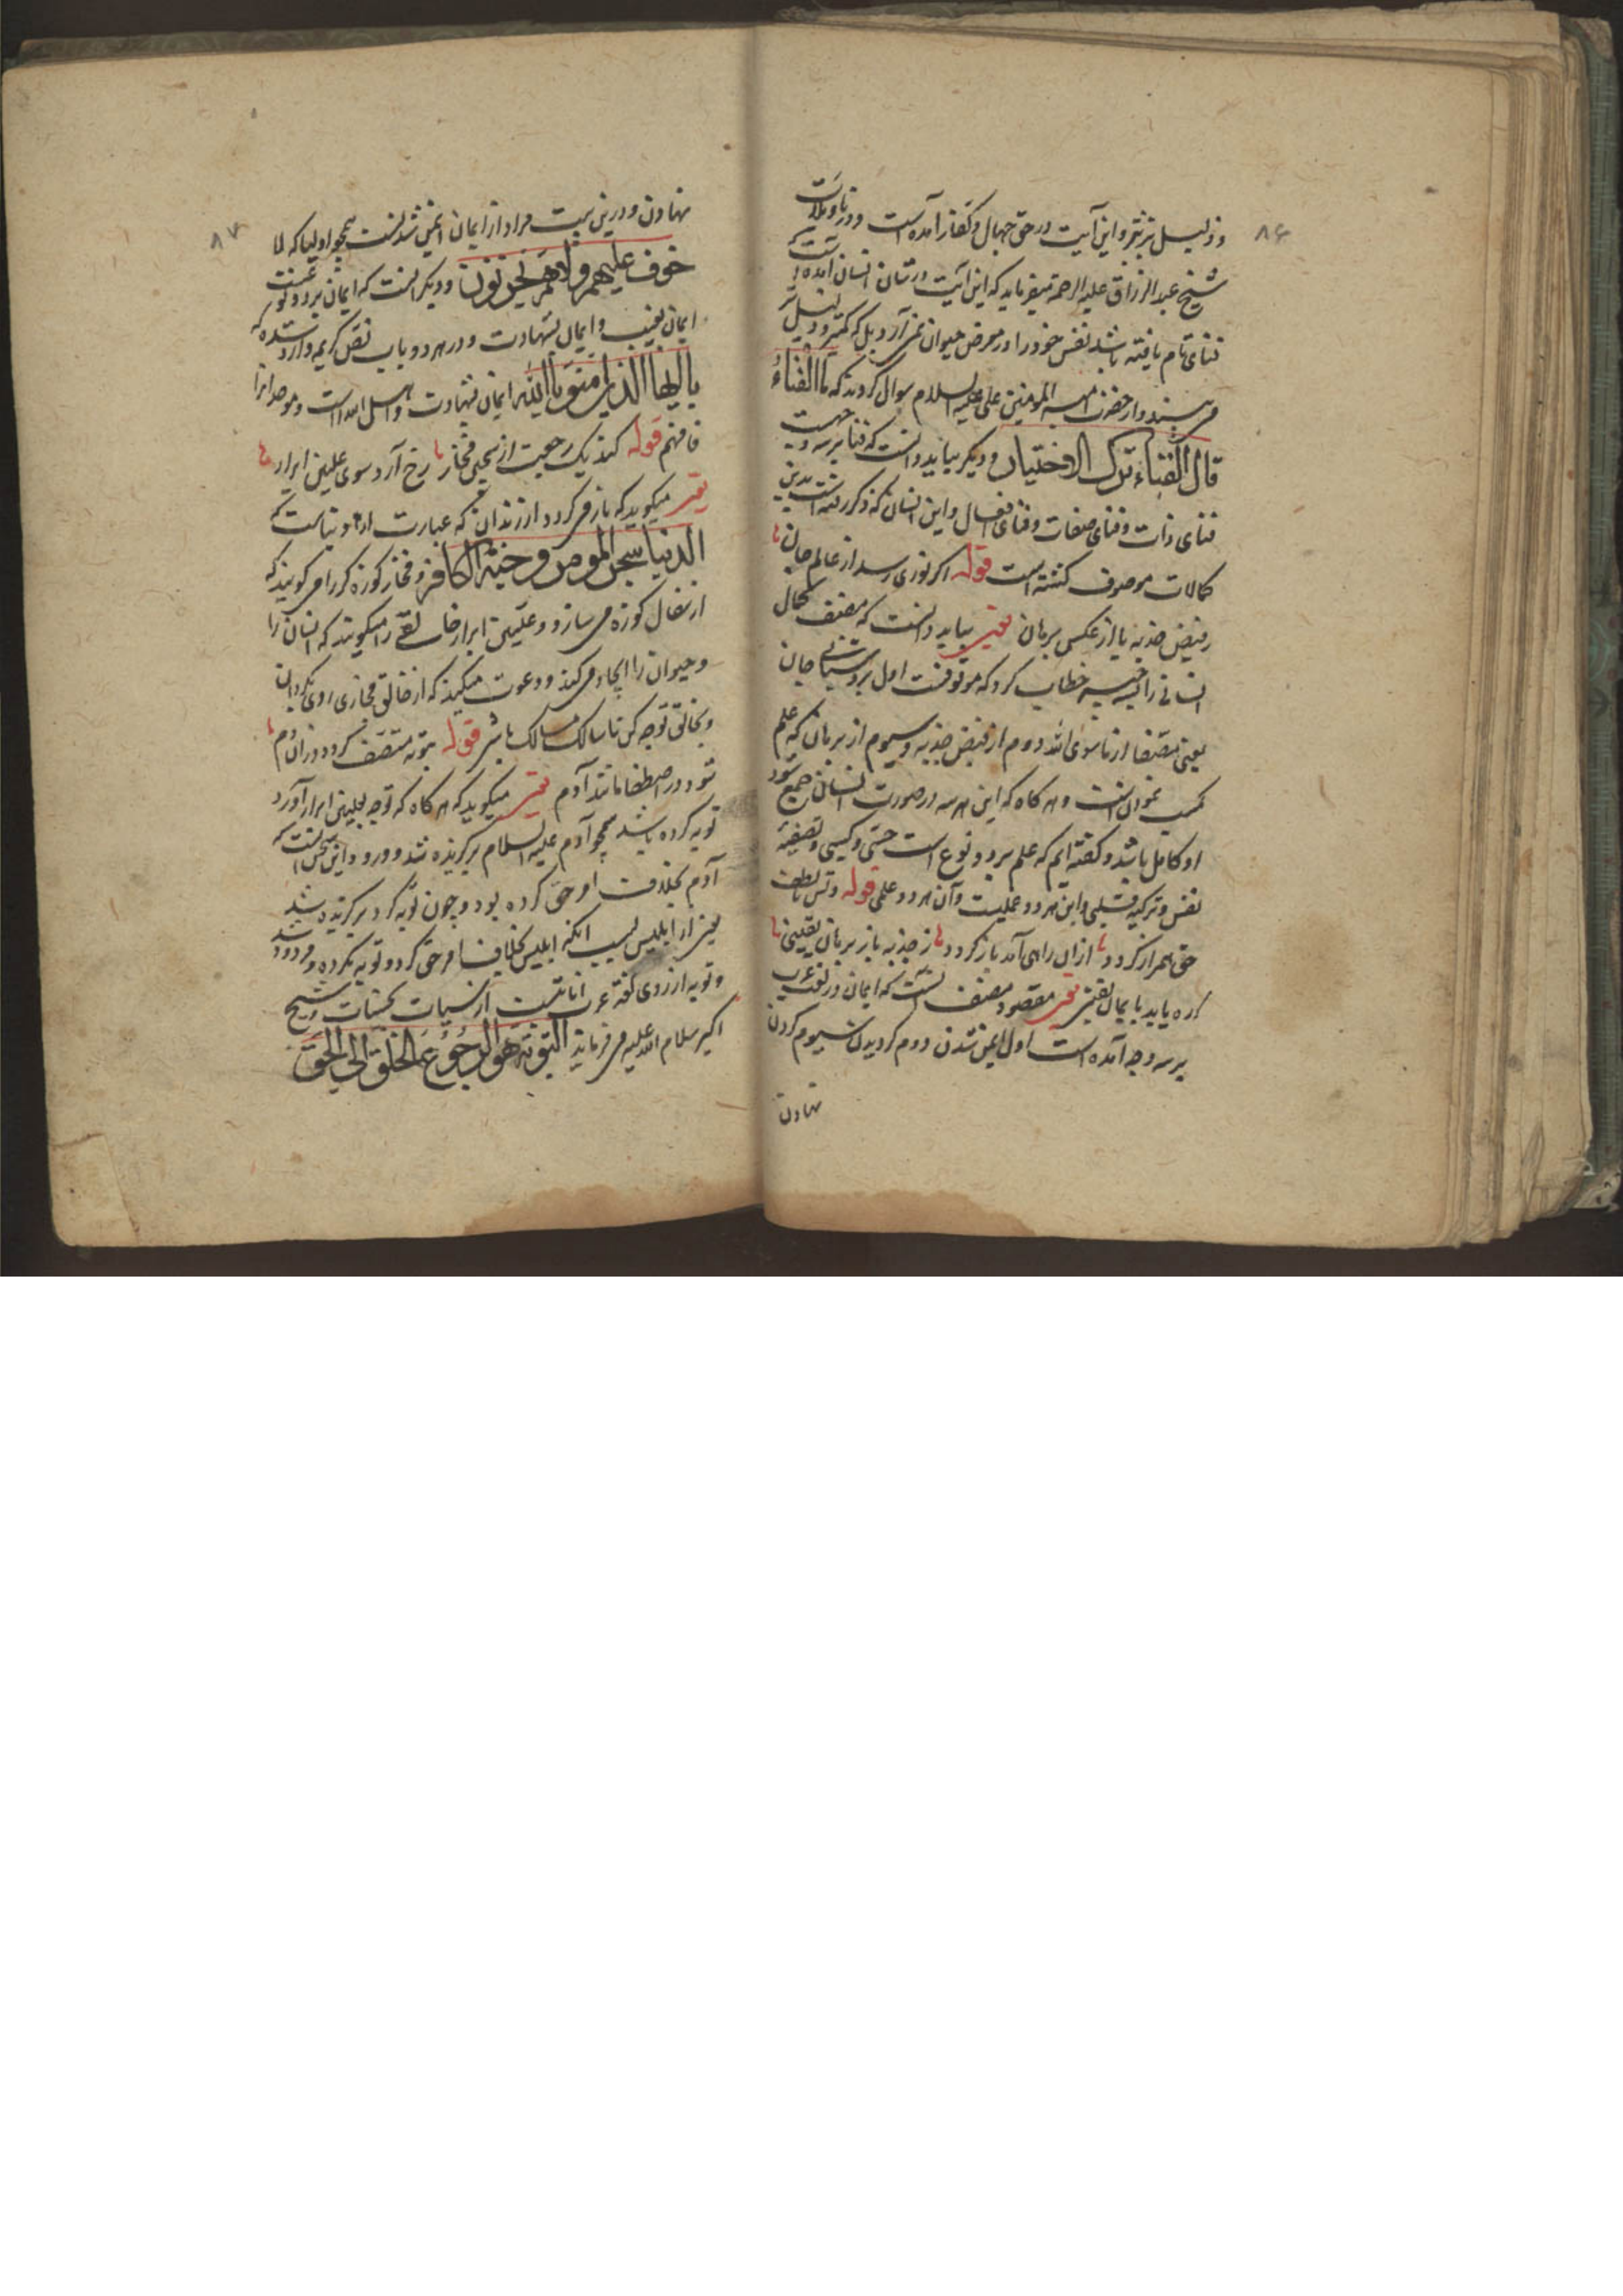 ۸۶
وذلیل‌تر نیز و این آیت در حق جهال و کفار آمده است و در تاویلات
شیخ عبدالرزاق علیه الرحمة میفرماید که این آیت در شان انسان آمده
فنای تام یافته باشد نفس خود را در معرض حیوان نمی آرد بل که کمتر و ذلیل‌تر
می بیند و از حضرت امیر المومنین علی علیه السلام سوال کردند که ما الفناء
قال الفناء ترک الاختیار و دیگر بباید دانست که فنا بر سه وجهست
فنای ذات و فنای صفات و فنای افعال و این انسان که ذکر رفته است بدین
کمالات موصوف گشته است قوله اگر نوری رسد از عالم جان
ز فیض جذبه یا از عکس برهان تفسیر بباید دانست که مصنف کمال
انسانی را به سه چیز خطاب کرد که موقوفست اول بروشنائی جان
یعنی مصفا از ماسوی الله دوم از فیض جذبه و سیوم از برهان که علم
کسب نمودن است و هر گاه که این هر سه در صورت انسان جمیع شود
او کامل باشد و گفته ایم که علم بر دو نوع است حسی و کسبی و تصفیه
نفس و تزکیه قلبی و این هر دو عملیست و آن هر دو علمی قوله دلش با لطف
حق همراز گردد از آن راهی که آمد باز گردد ز جذبه یا ز برهان یقینی
رهی یابد بایمان یقینی تفسیر مقصود مصنف آنست که ایمان در لغت عرب
بر سه وجه آمده است اول ایمن شدن دوم گرویدن سیوم کردن
نهادن
۸۷
نهادن و درین بیت مراد از ایمان ایمن شدنست همچو اولیا که لا
خوف علیهم ولا هم یحزنون و دیگر آنست که ایمان بر دو نوعست
ایمان بغیب و ایمان بشهادت و در هر دو باب نص کریم وارد شده که
یا ایها الذین امنوا بالله ایمان بشهادت و اصل
فافهم قوله کند یک رجعت از سجین فجار رخ آرد سوی علیین ابرار
تفسیر میگوید که باز می گردد از زندان که عبارت از دنیاست که
الدنیا سجن المومن و جنة الکافر و فجار کوزه گر را می گویند که
از سفال کوزه می سازد و علیین ابرار خالق را میگویند که انسان را
و حیوان را ایجاد می کند و دعوت میکند که از خالق مجازی روی بگردان
و بخالق توجه کن تا سالک مسالک باشی قوله بتوبه متصف گردد در آن دم
شود در اصطفا مانند آدم تفسیر میگوید که هر گاه که توجه بعلیین ابرار آورد
توبه کرده باشد همچو آدم علیه السلام برگزیده شد و درو دانستنی است که
آدم بخلافت امر حق کرده بود و چون توبه کرد برگزیده شد
یعنی از ابلیس بسبب آنکه ابلیس بخلاف امر حق کرد و توبه نکرده و مردود شد
و توبه از روی لغة عرب انابتست از سیئات بحسنات و شیخ
اکبر سلام الله علیه می فرماید التوبة هو الرجوع عن الخلق الی الحق